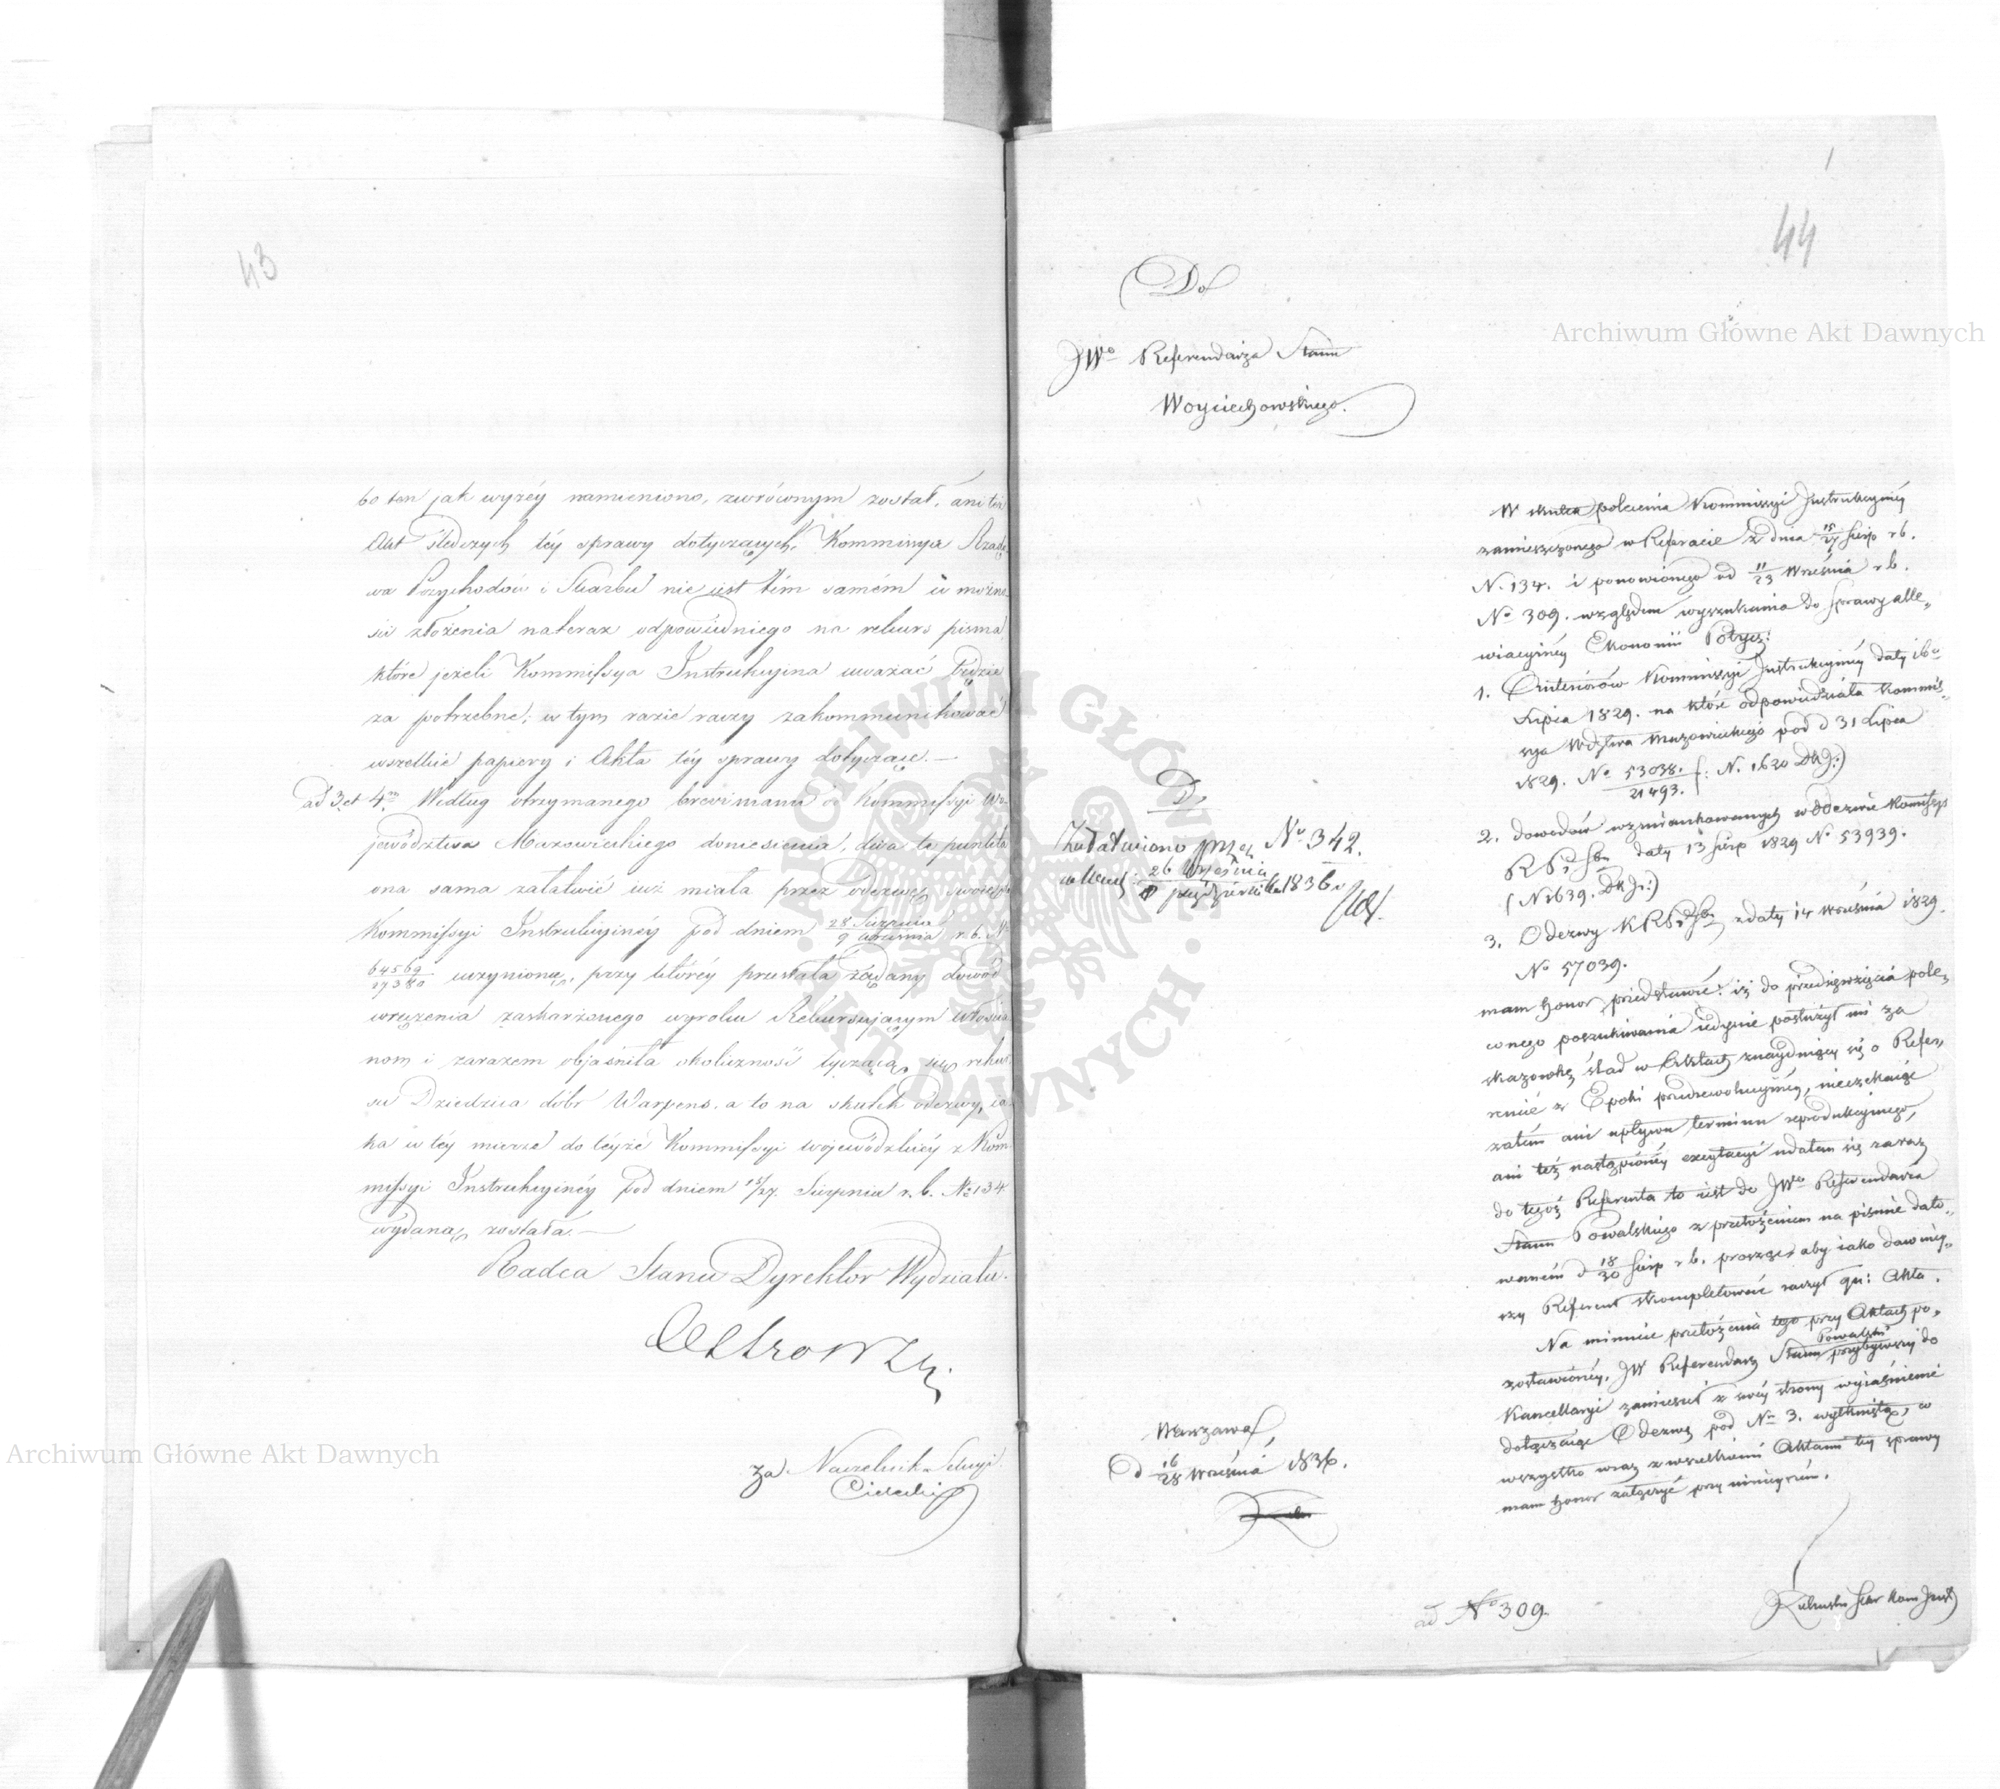 43
bo ten jak wyżéy namieniono, zwróconym został, ani też
Akt śledczych téy sprawy dotyczących, Kommissya Rządo
wa Przychodów i Skarbu nie iest tém samém w możno
ści złożenia nateraz odpowiedniego na rekurs pisma
które jeżeli Kommissya Instrukcyina uważać będzie
za potrzebne, w tym razie raczy zakommunikować
wszelkie papiery i Akta téy sprawy dotyczące.—
ad 3 et 4m Według otrzymanego brevi manu od Kommissyi Wo
jewództwa Mazowieckiego doniesienia, dwa te punkta
ona sama załatwić iuż miała przez odezwę swoię
Kommissyi Instrukcyinéy pod dniem 28 Sierpnia / 9 Września r. b. No
64569 / 17380 uczynioną, przy któréy przesłała żądany dowód
wręczenia zaskarżonego wyroku Rekursującym Włościa
nom i zarazem objaśniła okoliczność tyczącą się rekur
su Dziedzica dóbr Warpęns. a to na skutek odezwy, ia
ka w téy mierze do téyże Kommissyi Wojewódzkiéy z Kom
missyi Instrukcyinéy pod dniem 15/27 Sierpnia r. b. No 134
wydaną została.—
Radca Stanu Dyrektor Wydziału.
za Naczelnik Sekcyi
44
Do
JWo Referendarza Stanu
Woyciechowskiego.
W skutku polecenia Kommissyi Instrukcyinéy
zamieszczonego w Referacie z dnia 15/27 Sierp r b.
N. 134. i ponowionego od 11/23 Września r b.
No 309. względem wyszukania do sprawy alle-
wiacyinéy Ekonomii Potycz:
1. Anteriorów Kommissyi Instrukcyinéy daty
Lipca 1829. na które odpowiedziała Kommis-
sya Wdztwa Mazowieckiego pod d 31 Lipca
1829. No 53038. / 21493. (: N. 1620 DKJ:)
2. dowodów wzmiankowanych w odezwie Kommissyi
R P i Sbu daty 13 Sierp 1829 No 53939.
(N 1639. DKJ:)
3. Odezwy KRPiSbu z daty 14 Września 1829.
No 57039.
mam honor przedstawić: iż do przedsięwzięcia pole-
conego poszukiwania iedynie posłużył mi za
skazówkę ślad w Aktach znayduiący się o Refe-
rencie z Epoki przedrewolucyinéy, nieczekaiąc
zatém ani upływu terminu reprodukcyinego,
ani też nastąpionéy excytacyi udałem się zaraz
do tegoż Referenta to iest do JWo Referendarza
Stanu Powalskiego z przełożeniem na piśmie dato-
wanem d 18/30 Sierp r b. prosząc, aby iako dawniéy-
szy Referent skompletować raczył qu: Akta.
Na minucie przełożenia tego przy Aktach po-
zostawionéy, JW Referendarz Stanu Powalski przybywszy do
Kancellaryi zamieścił z swéy strony wyiaśnienie
dołączaiąc Odezwę pod No 3. wytkniętą, co
wszystko wraz z wszelkiemi Aktami téy sprawy
mam honor załączyć przy ninieyszem.
Do
Załatwiono przez No 342.
26 Września / 8 października 1836 r
Warszawa
d 16/28 Września 1836.
ad No 309.